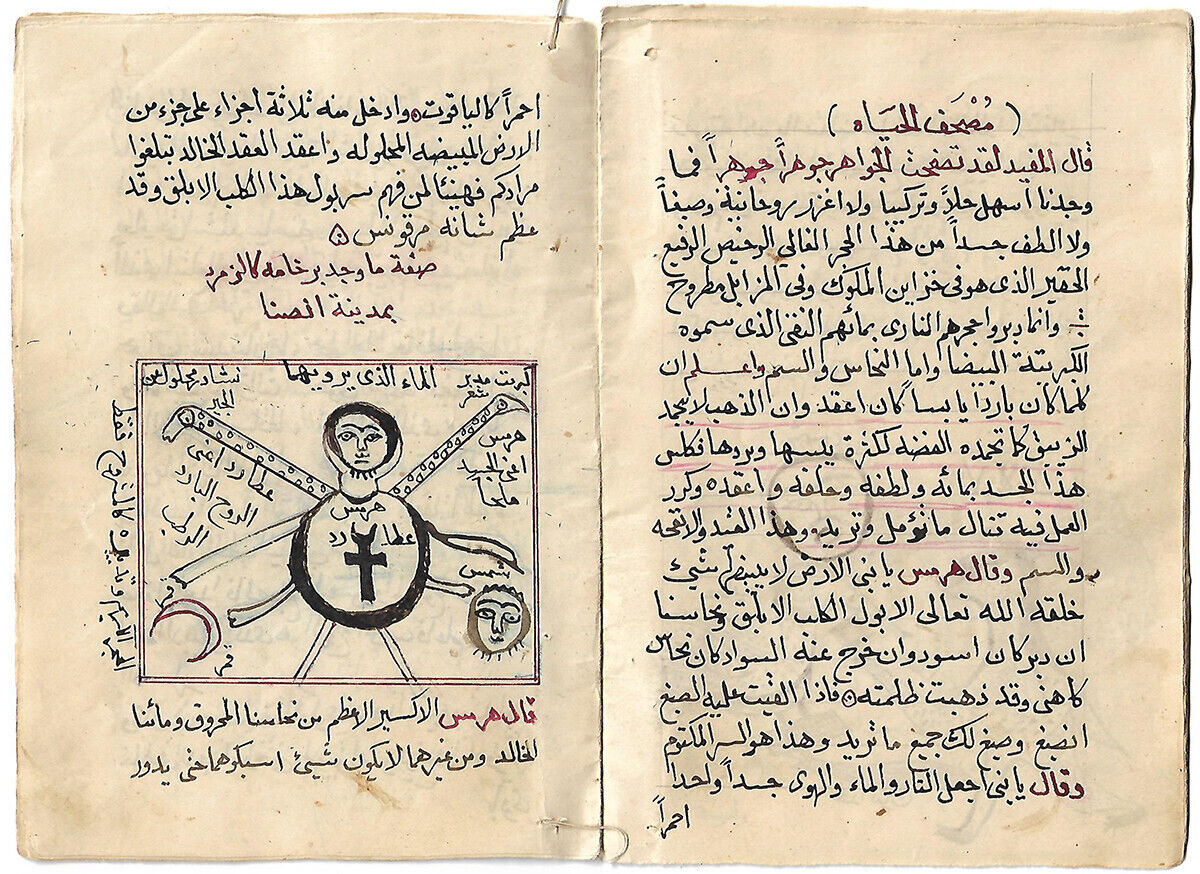 ( مُصْحَف الحَيَاه )
قال المفيد لقد تصفحت الجواهر جوهراً جوهراً فما
وجدنا اسهل حلاً وتركيبا ولا اغزر روحانية وصبغاً
ولا الطف جسداً من هذا الحجر الغالي الرخيص الرفيع
الحقير الذى هو فى خزاين الملوك وفى المزابل مطروح
وانما دبروا حجرهم النارى بمائهم النقى الذى سموه
الكبريتة البيضا واما النحاس والسم واعلم ان
كلما كان بارداً يابسا كان اعقد وان الذهب لا يجمد
الزيبق كما تجمده الفضه لكثرة يبسها وبردها فكلس
هذا الجسد بمائه ولطفه وخلفه واعقده وكرر
العمل فيه تنال ما تؤمل وتريد وهذا القيد والانفحه
والسم وقال هرمس يا بنى الارض لا يبيضها شيئ
خلقه الله تعالى الا بول الكلب الابلق ونحاسنا
ان دبر كان اسود وان خرج عنه السواد كان نحاس
كاهنى وقد ذهبت ظلمته فاذا القيت عليه الصبغ
انصبغ وصبغ لك جميع ما تريد وهذا هو السر المكتوم
وقال يا بنى اجعل النار والماء والهوى جسداً واحدا
احمراً
احمراً كالياقوت وادخل منه ثلاثة اجزاء على جزء من
الارض المبيضه المحلوله واعقد العقد الخالد تبلغوا
مرادكم فهنيئا لمن فهم سر بول هذا الكلب الابلق وقد
عظم شانه مرقونس
صفة ما وجد برخامه كالزمرد
بمدينة انصنا
كبريت مدبر
شعر
الماء الذى يرويهما
نشادر محلول عن
الحجر
هرمس
عطارد اعنى
الروح البارد
الرطب
هرمس
عطارد
شمس
قمر
قمر
قال هرمس الاكسير الاعظم من نحاسنا المحروق ومائنا
الخالد ومن غيرهما لا يكون شيئ اسبكوهما حتى يدور